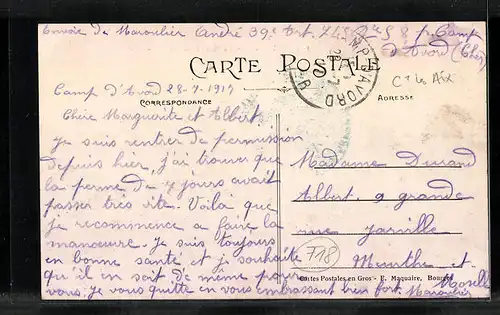 Envoie de Marculier André 39e Art. 74e Bie S 8 p. Camp
d'Avord (Cher)
CARTE POSTALE
CAMP D'AVORD
CHER
Camp d'Avord 28-7-1917
C. Les Aix
CORRESPONDANCE
ADRESSE
Chère Marguerite et Albert
Je suis rentrer de permission
depuis hier, j'ai trouver que
la perme de 7 jours avait
passer très vite. Voilà que
je recommence a faire la
manœuvre. Je suis toujours
en bonne santé et je souhaite
qu'il en soit de même pour
vous. je vous quitte en vous embrassant bien fort. Marculier
Madame Durand
Albert, 9 grande
rue Jarville
Meurthe et
Moselle
718
Cartes Postales en Gros - E. Maquaire, Bourges